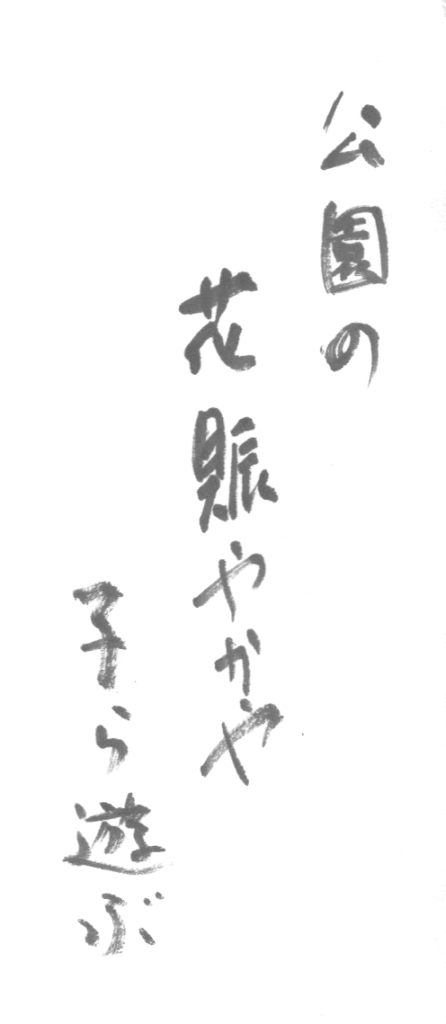 公園の
花賑やかや
子ら遊ぶ